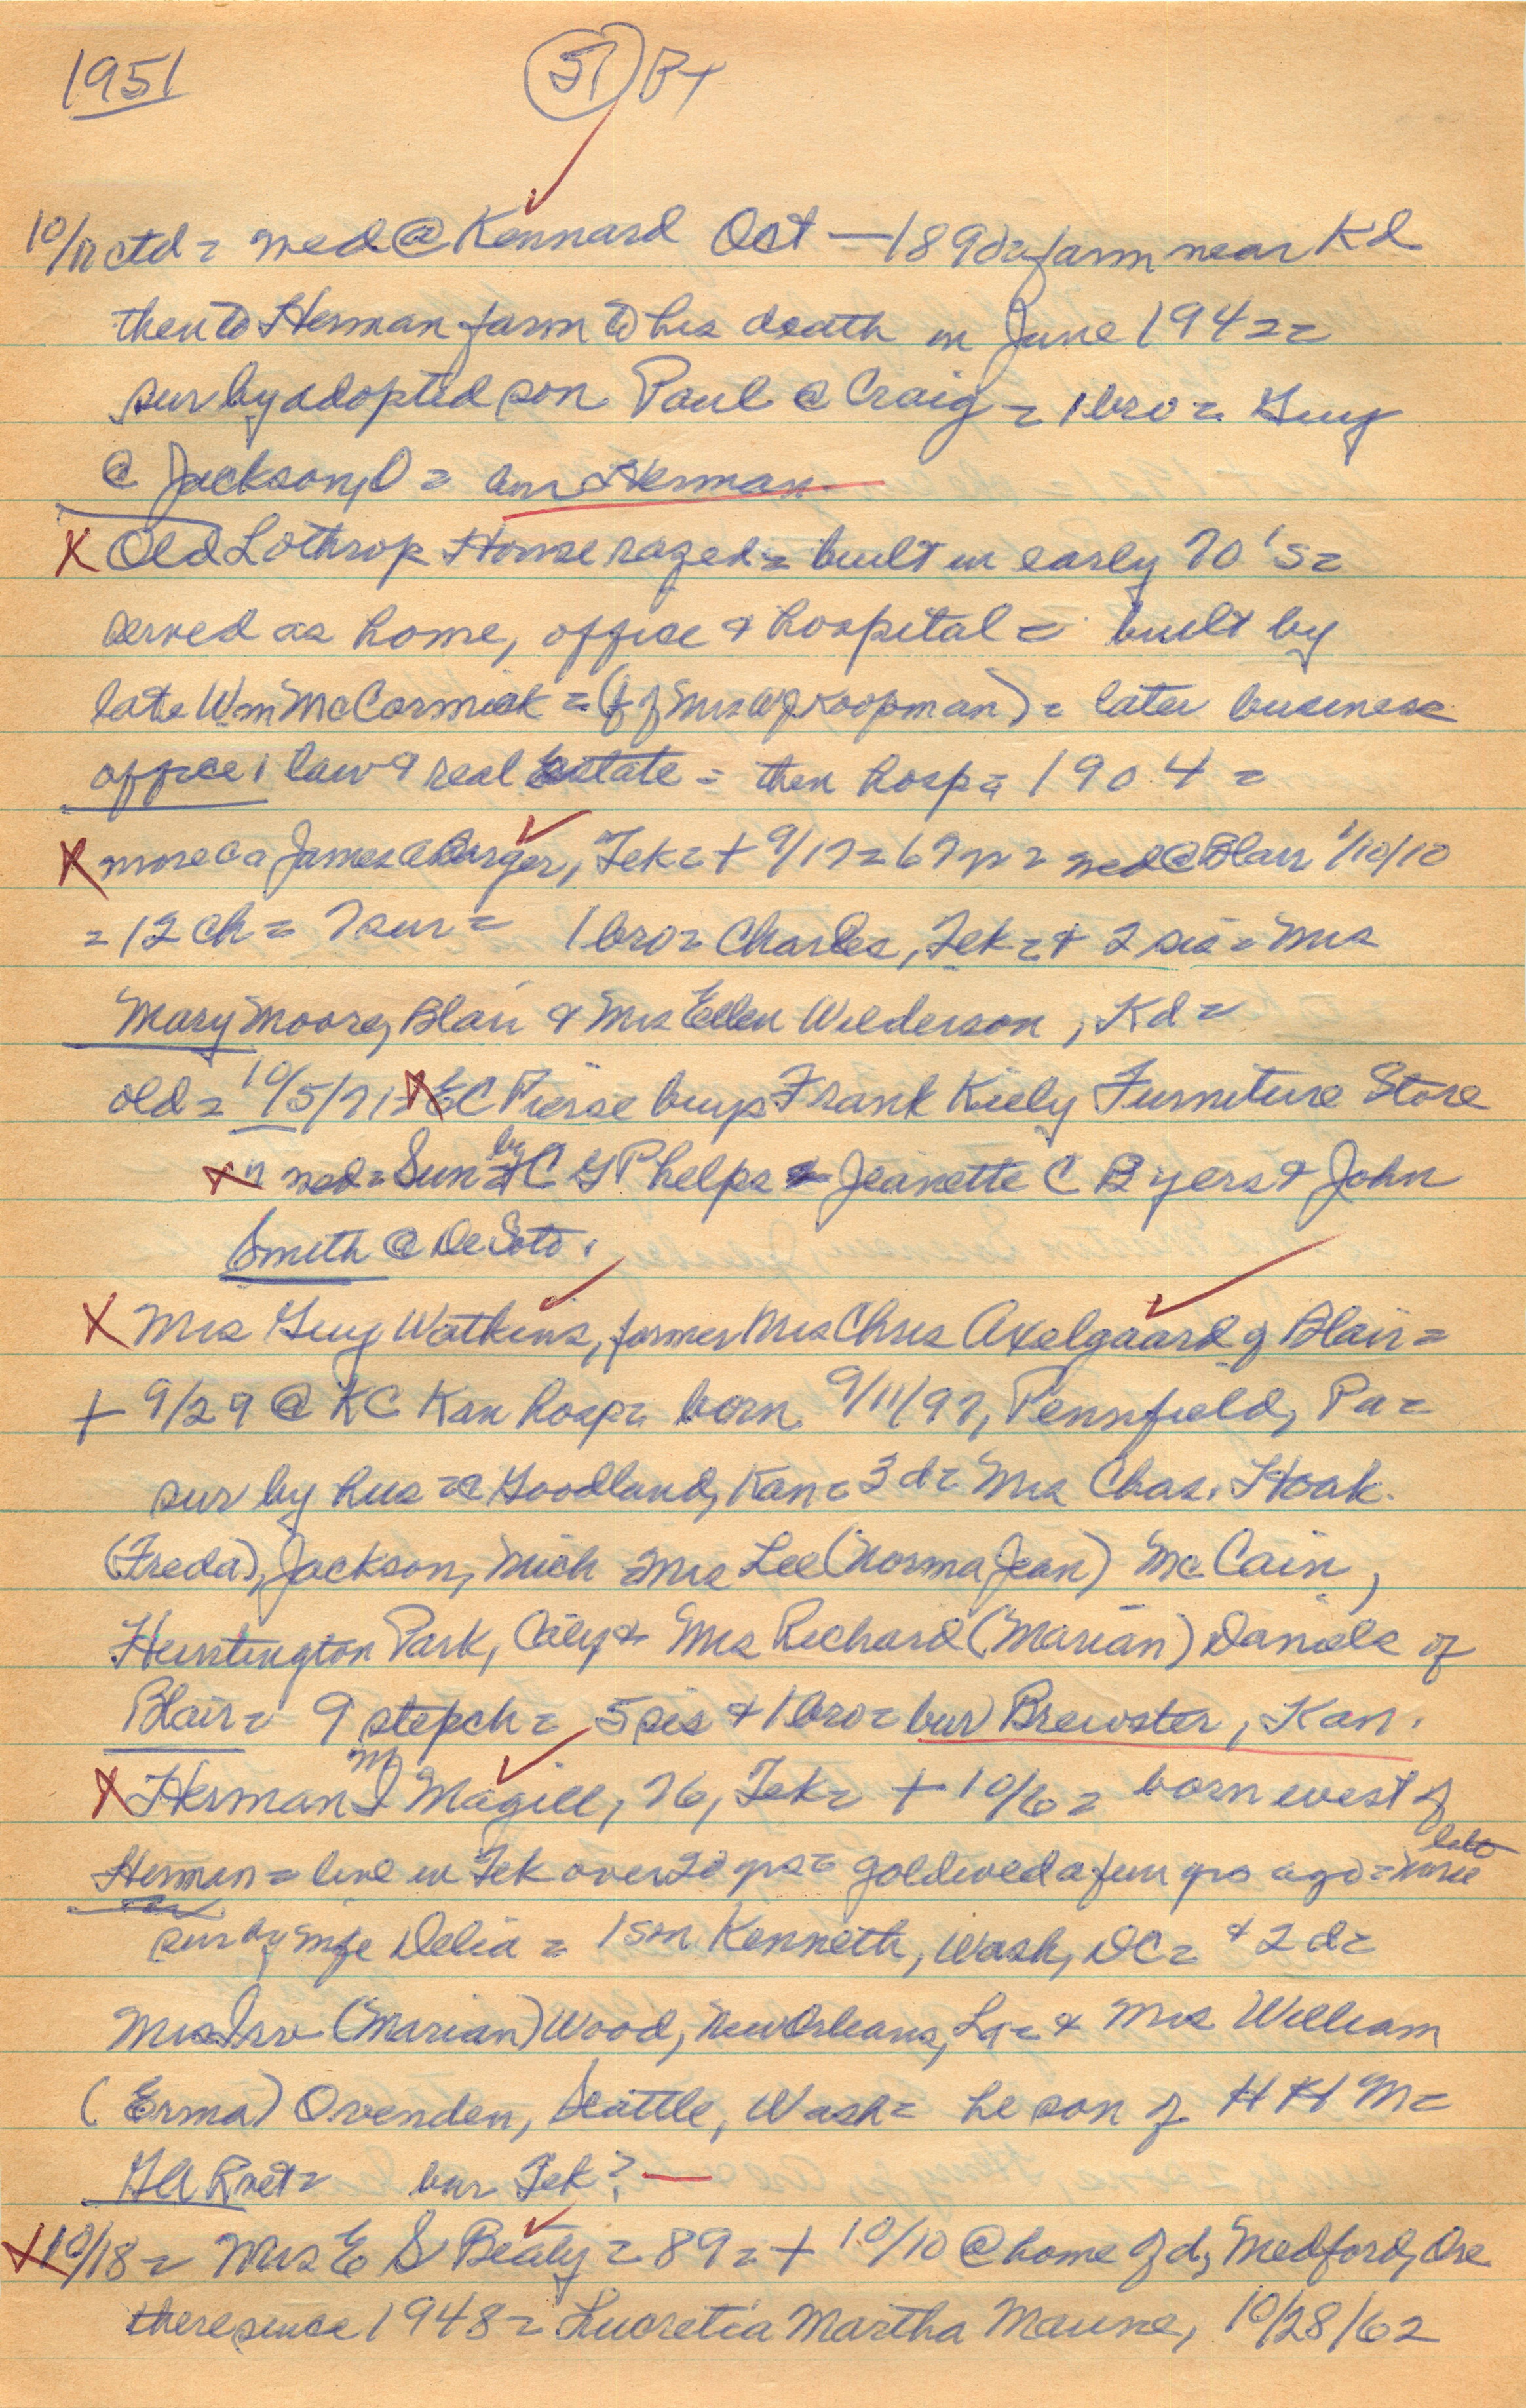 1951 (51) Bx
10/11 ctd = med @ Kennard Oct — 189 = farm near Kd
then to Herman farm to his death in June 1942 =
sur by adopted son Paul @ Craig = 1 bro = Guy
@ Jackson, O = bur Herman
X Old Lothrop House razed = built in early 70's =
served as home, office & hospital = built by
late Wm McCormick = (f of Mrs W J Koopman) = later business
office, law & real estate = then hosp = 1904 =
X more ca James A Barger, Tek = + 9/17 = 67 yr = med @ Blair 1/10/10
= 12 ch = 7 sur = 1 bro = Charles, Tek = & 2 sis = Mrs
Mary Moore, Blair & Mrs Ellen Wilderson, Kd =
old = 10/5/71 = X E C Pierse buys Frank Kiely Furniture Store
X " med = Sun by C G Phelps = Jeanette C Byers & John
Smith @ De Soto.
X Mrs Guy Watkins, former Mrs Chris Axelgaard of Blair =
+ 9/29 @ KC Kan hosp = born 9/11/97, Pennfield, Pa =
sur by hus = @ Goodland, Kan = 3 d = Mrs Chas. Hoak
(Freda), Jackson, Mich = Mrs Lee (Norma Jean) McCain,
Huntington Park, Calif & Mrs Richard (Marian) Daniels of
Blair = 9 stepch = 5 sis & 1 bro = bur Brewster, Kan.
X Herman M Magill, 76, Tek = + 10/6 = born west of
Herman = live in Tek over 20 yrs = gold wed a few yrs ago =
sur by wife Delia = 1 son Kenneth, Wash, DC = & 2 d =
Mrs Irv (Marian) Wood, New Orleans, La = & Mrs William
(Erma) Ovenden, Seattle, Wash = he son of H H M =
bur Tek? —
X 10/18 = Mrs E S Beaty = 89 = + 10/10 @ home of d, Medford, Ore
there since 1948 = Lucretia Martha Maune, 10/28/62